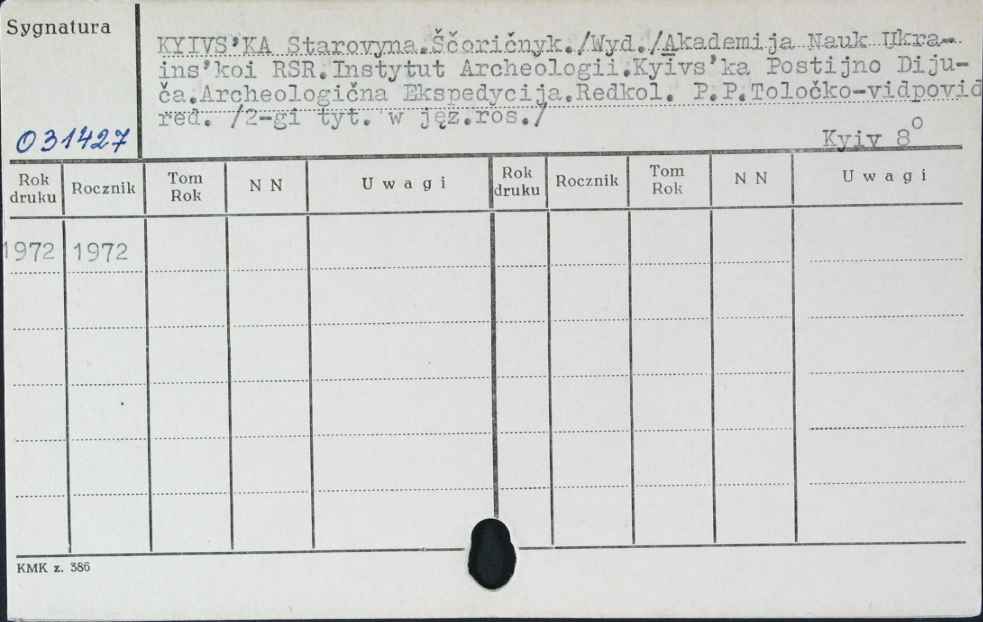 Sygnatura
KYIVS'KA Starovyna.Ščoričnyk./Wyd./Akademija Nauk Ukra-
ins'koi RSR.Instytut Archeologii.Kyivs'ka Postijno Diju-
ča.Archeologična Ekspedycija.Redkol. P.P.Toločko-vidpovid
red. /2-gi tyt. w jęz.ros./
031427
Kyiv 8o
Rok druku Rocznik Tom Rok N N Uwagi Rok druku Rocznik Tom Rok N N Uwagi
1972 1972
KMK z. 386